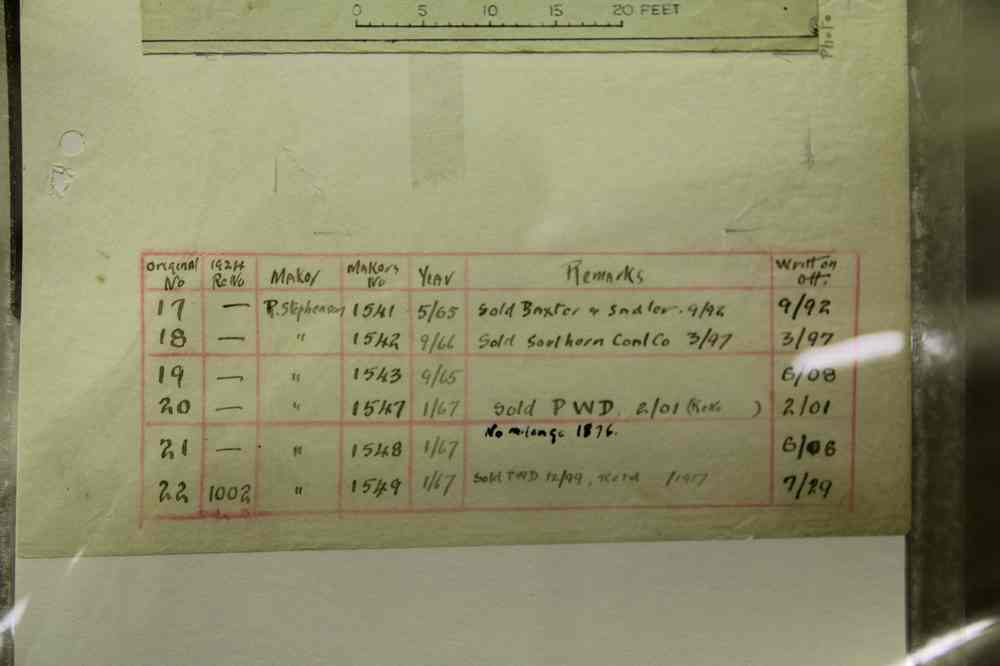 0 5 10 15 20 FEET
Photo
Original No 1924 Re No Maker Makers No Year Remarks Written off.
17 — R. Stephenson 1541 5/65 Sold Baxter & Sadler. 9/92 9/92
18 — " 1542 9/66 Sold Southern Coal Co 3/97 3/97
19 — " 1543 9/65 6/08
20 — " 1547 1/67 Sold PWD. 2/01 (ReNo ) 2/01
21 — " 1548 1/67 No milange 1876. 6/06
22 1002 " 1549 1/67 Sold PWD 12/99, /1917 7/29